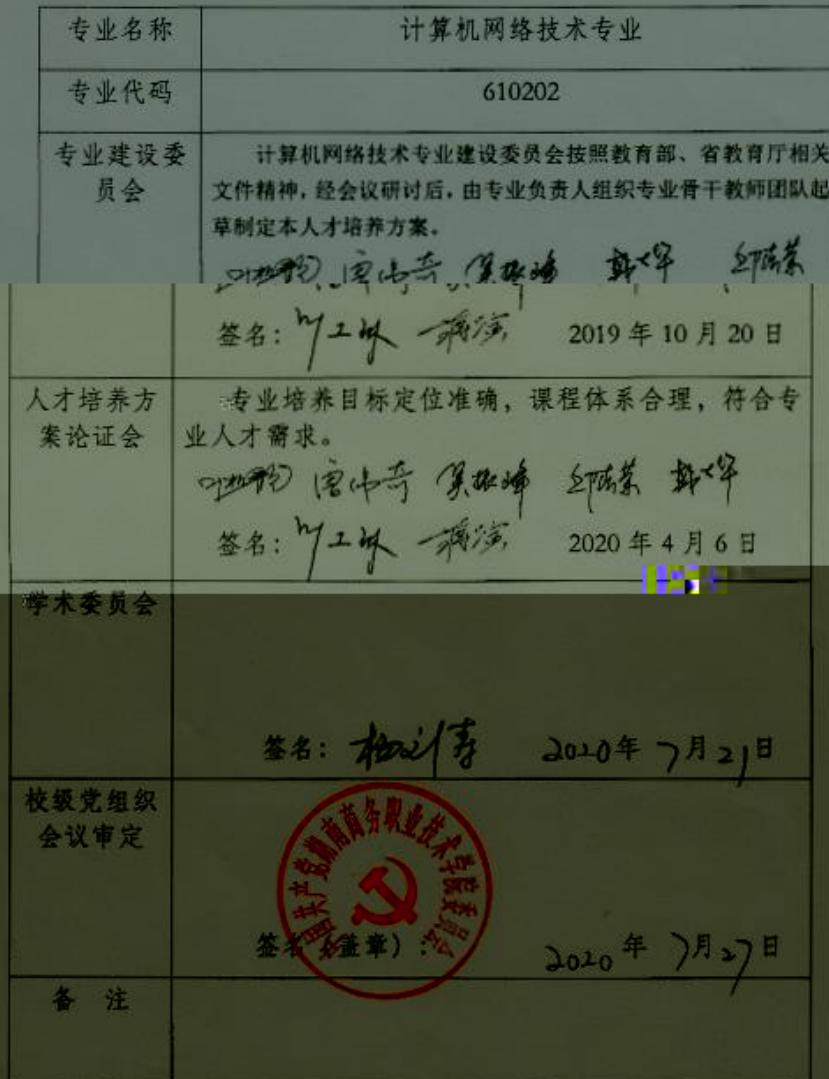 专业名称 计算机网络技术专业
专业代码 610202
专业建设委 计算机网络技术专业建设委员会按照教育部、省教育厅相关
员会 文件精神，经会议研讨后，由专业负责人组织专业骨干教师团队起
草制定本人才培养方案。
签名： 2019年10月20日
人才培养方 专业培养目标定位准确，课程体系合理，符合专
案论证会 业人才需求。
签名： 2020年4月6日
学术委员会
签名： 2020年7月21日
校级党组织
会议审定
中国共产党湖南商务职业技术学院委员会
签名（盖章）： 2020年7月27日
备 注